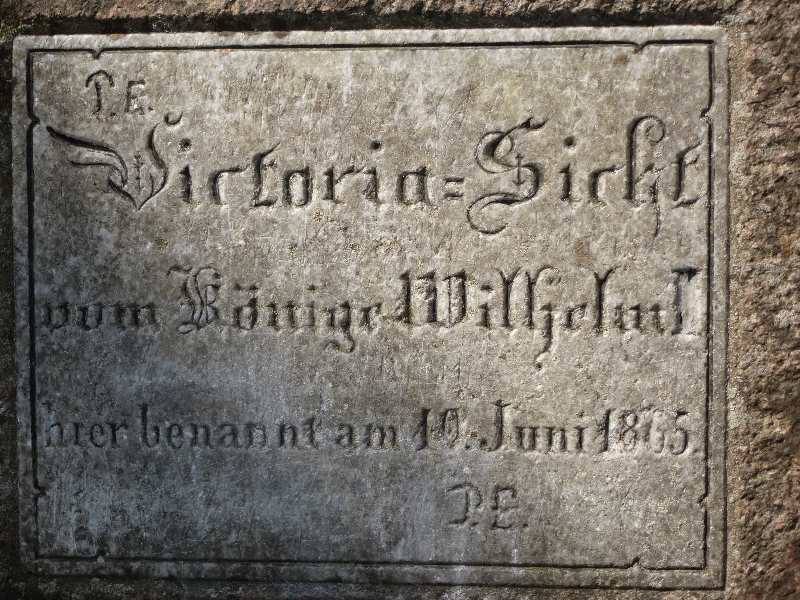 P.E.
Victoria=Sicht
vom Könige Wilhelm I
hier benannt am 10. Juni 1865.
P.E.